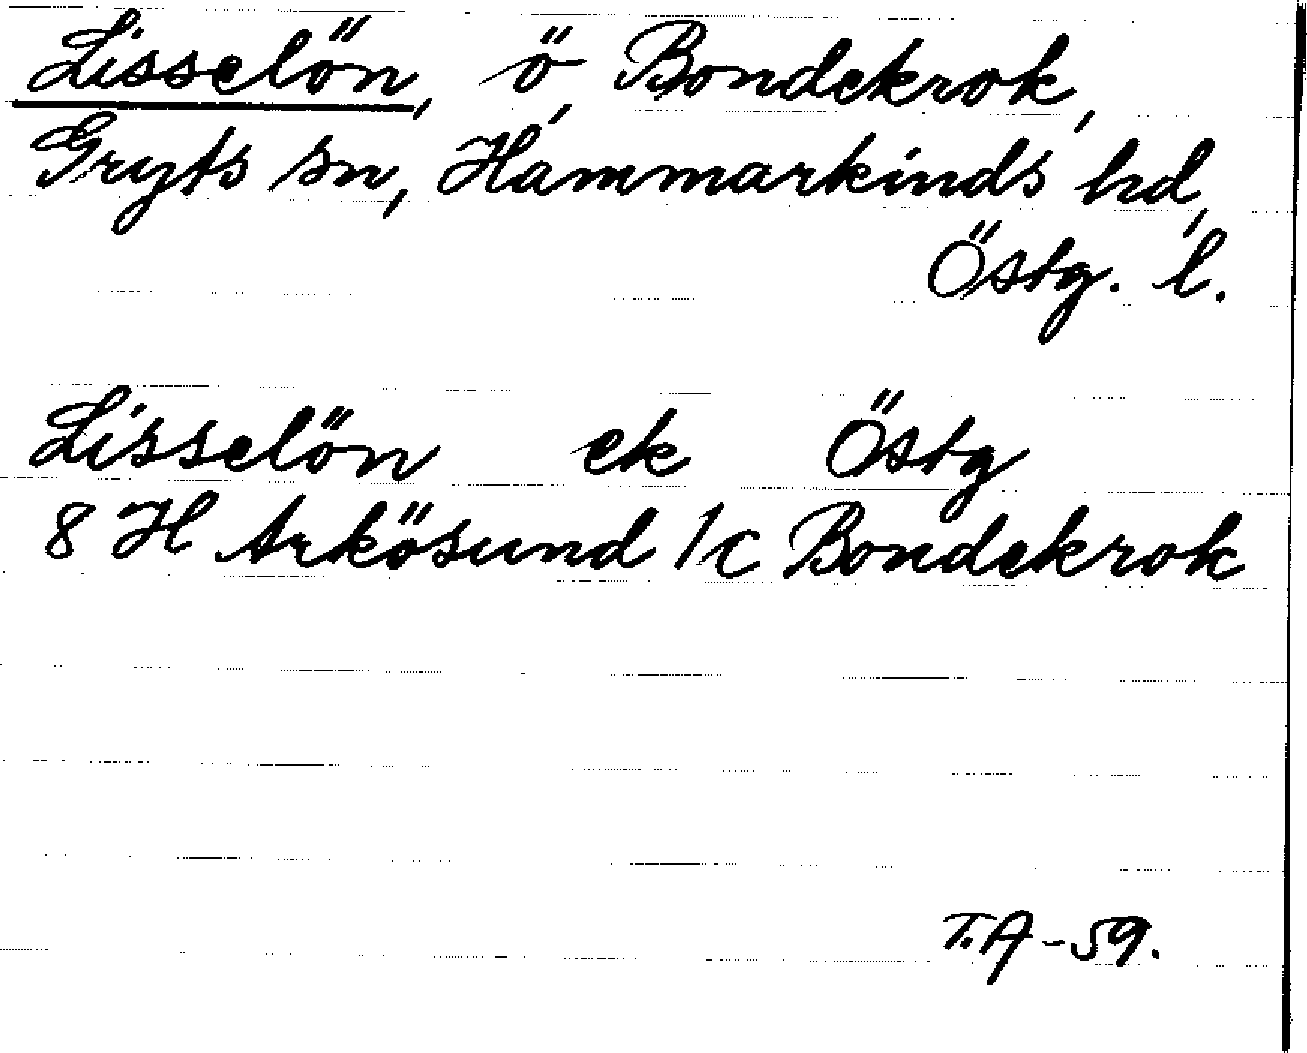 Lisselön, ö, Bondekrok,
Gryts sn, Hammarkinds hd,
Östg. l.
Lisselön ek Östg
8 H Arkösund 1c Bondekrok
T.A -59.